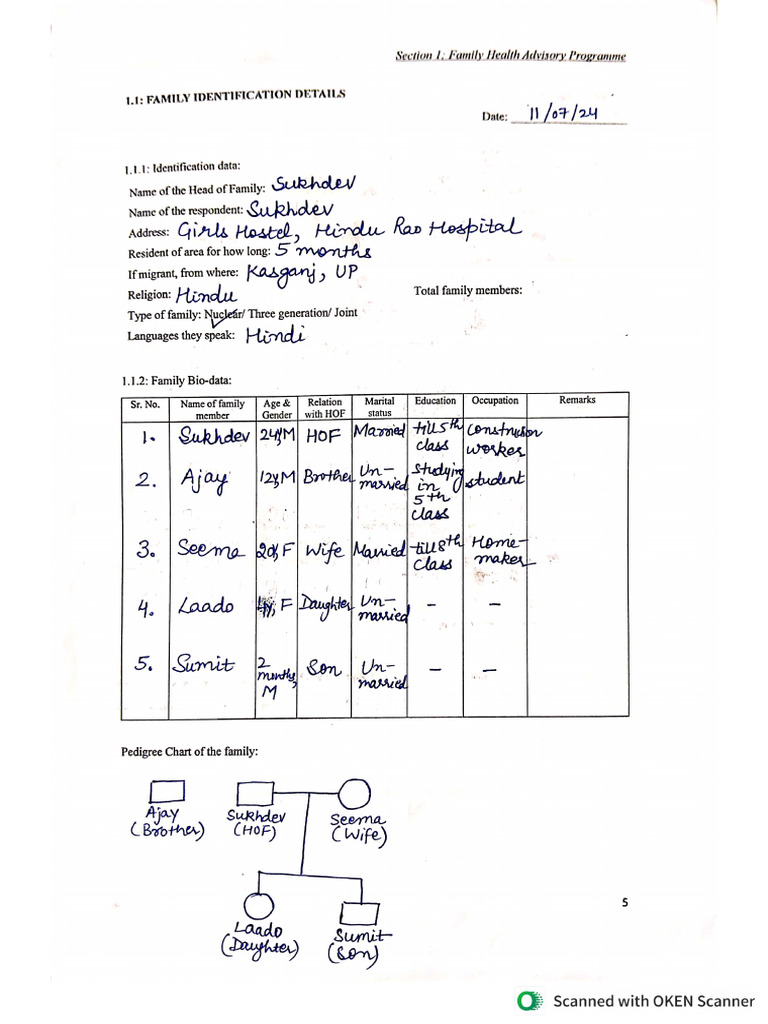 Section 1: Family Health Advisory Programme
1.1: FAMILY IDENTIFICATION DETAILS
Date: 11/07/24
1.1.1: Identification data:
Name of the Head of Family: Sukhdev
Name of the respondent: Sukhdev
Address: Girls Hostel, Hindu Rao Hospital
Resident of area for how long: 5 months
If migrant, from where: Kasganj, UP
Religion: Hindu Total family members:
Type of family: Nuclear/ Three generation/ Joint
Languages they speak: Hindi
1.1.2: Family Bio-data:
Sr. No. Name of family member Age & Gender Relation with HOF Marital status Education Occupation Remarks
1. Sukhdev 24y/M HOF Married till 5th class construction worker
2. Ajay 12y, M Brother Un-married studying in 5th class student
3. Seema 20y, F Wife Married till 8th class Home-maker
4. Laado F Daughter Un-married - -
5. Sumit 2 months, M Son Un-married - -
Pedigree Chart of the family:
Ajay (Brother)
Sukhdev (HOF)
Seema (Wife)
Laado (Daughter)
Sumit (Son)
5
Scanned with OKEN Scanner